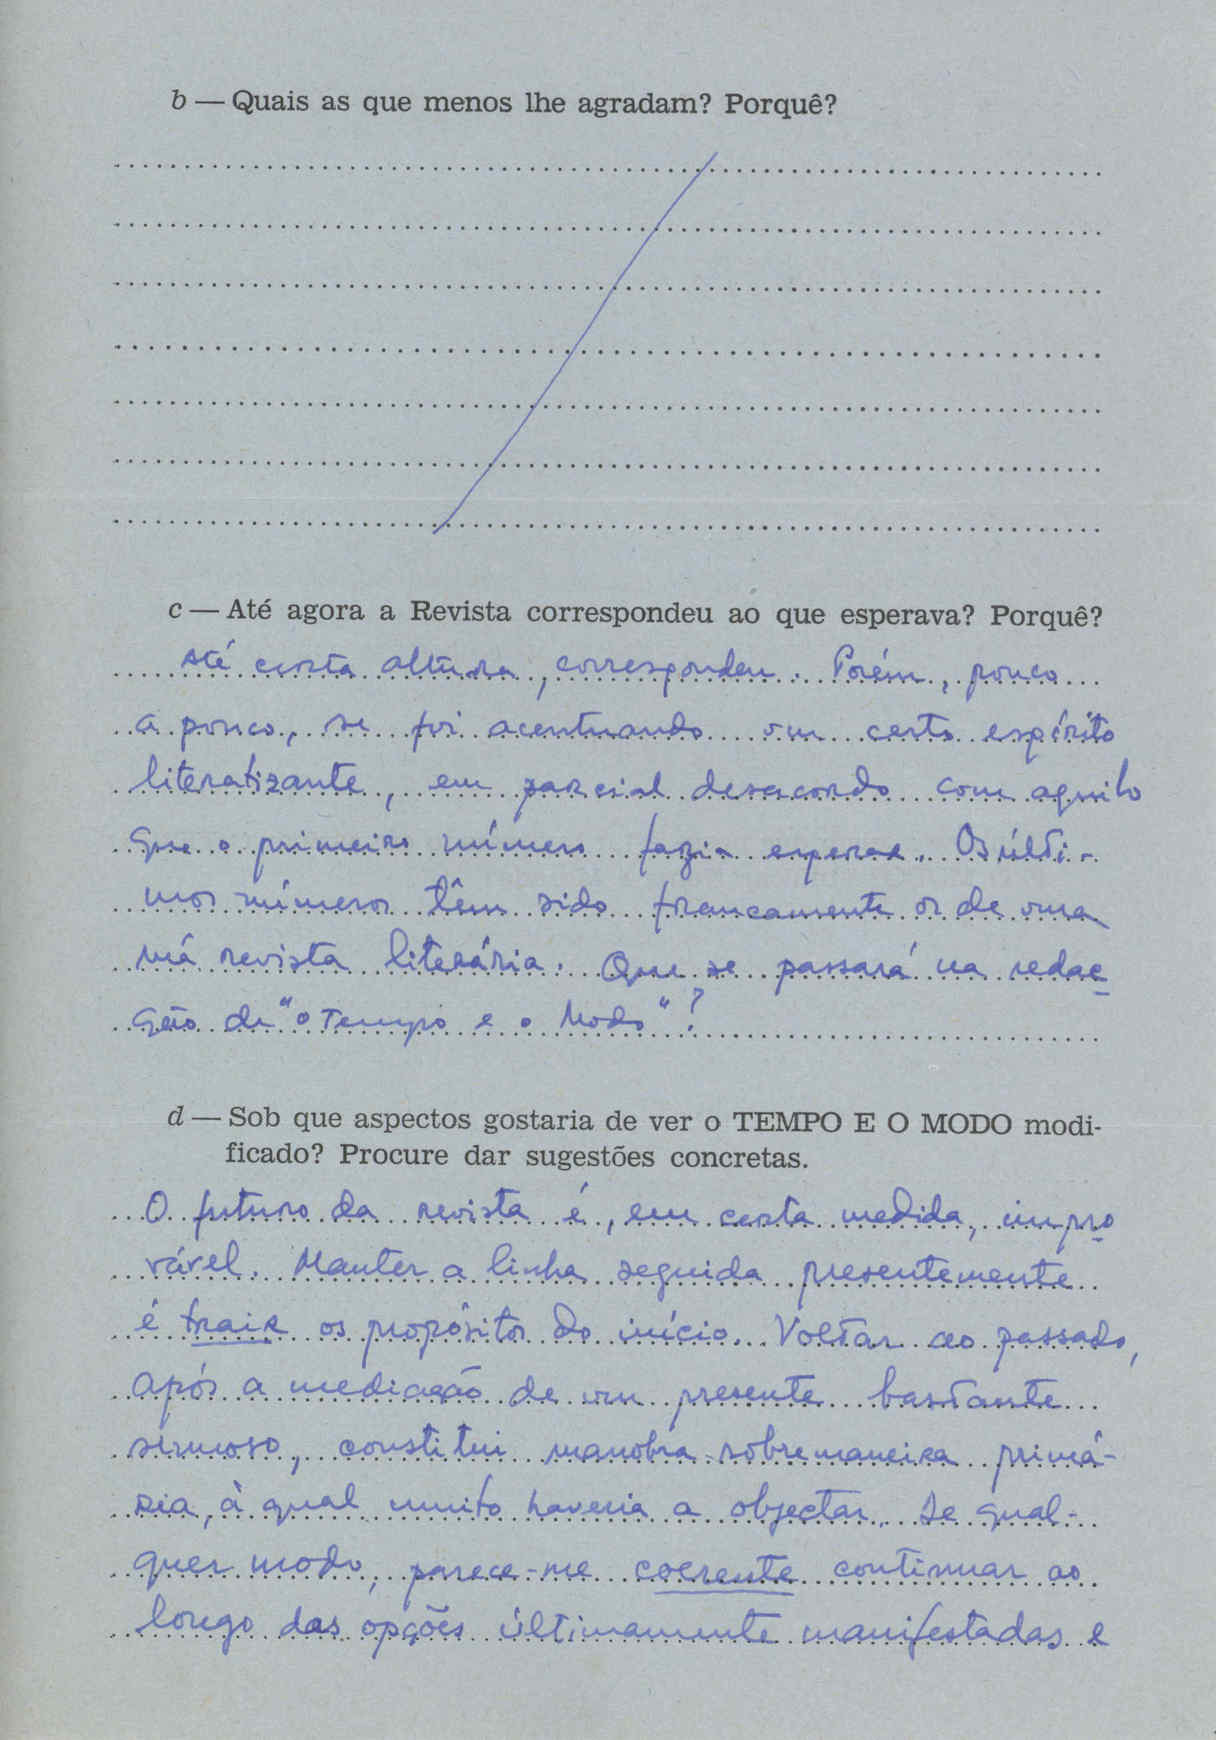 b — Quais as que menos lhe agradam? Porquê?
c — Até agora a Revista correspondeu ao que esperava? Porquê?
Até certa altura, correspondeu. Porém, pouco
a pouco, se foi acentuando um certo espírito
literatizante, em parcial desacordo com aquilo
que o primeiro número fazia esperar. Os últi-
mos números têm sido francamente os de uma
má revista literária. Que se passará na redac
ção de "o Tempo e o Modo"?
d — Sob que aspectos gostaria de ver o TEMPO E O MODO modi-
ficado? Procure dar sugestões concretas.
O futuro da revista é, em certa medida, impro
vável. Manter a linha seguida presentemente
é trair os propósitos do início. Voltar ao passado,
após a mediação de um presente bastante
sinuoso, constitui manobra sobremaneira primá-
ria, à qual muito haveria a objectar. De qual-
quer modo, parece-me coerente continuar ao
longo das opções últimamente manifestadas e